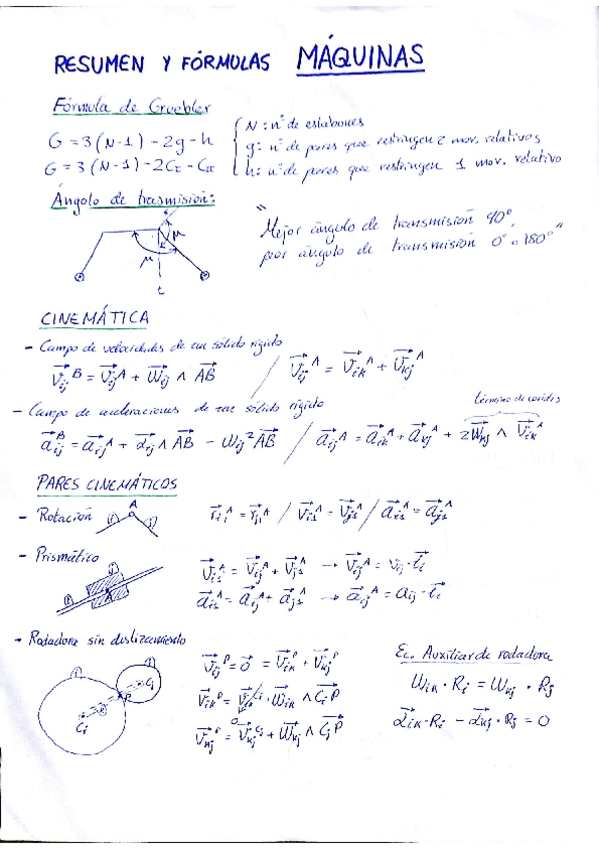 RESUMEN Y FÓRMULAS MÁQUINAS
Fórmula de Gruebler
G = 3(N-1) - 2g - h
G = 3(N-1) - 2C_I - C_II
N: nº de eslabones
g: nº de pares que restringen 2 mov. relativos
h: nº de pares que restringen 1 mov. relativo
Ángulo de trasmisión:
"Mejor ángulo de transmisión 90°
peor ángulo de transmisión 0° o 180°"
μ
μ
t
CINEMÁTICA
- Campo de velocidades de un sólido rígido
v⃗ij^B = v⃗ij^A + ω⃗ij ∧ AB⃗ / v⃗ij^A = v⃗ik^A + v⃗kj^A
- Campo de aceleraciones de un sólido rígido
término de coriolis
a⃗ij^B = a⃗ij^A + α⃗ij ∧ AB⃗ - ωij² AB⃗ / a⃗ij^A = a⃗ik^A + a⃗kj^A + 2ω⃗kj ∧ v⃗ik^A
PARES CINEMÁTICOS
- Rotación
A
i
j
r⃗i1^A = r⃗j1^A / v⃗i1^A = v⃗j1^A / a⃗i1^A = a⃗j1^A
- Prismático
v⃗i1^A = v⃗ij^A + v⃗j1^A → v⃗ij^A = vij · t⃗i
a⃗i1^A = a⃗ij^A + a⃗j1^A → a⃗ij^A = aij · t⃗i
A
- Rodadora sin deslizamiento
v⃗ij^P = 0⃗ = v⃗ik^P + v⃗kj^P
v⃗ik^P = v⃗ik^Ci + ω⃗ik ∧ CiP⃗
v⃗kj^P = v⃗kj^Cj + ω⃗kj ∧ CjP⃗
Ec. Auxiliar de rodadora
ωik · Ri = ωkj · Rj
α⃗ik · Ri - α⃗kj · Rj = 0
Ci
P
Cj